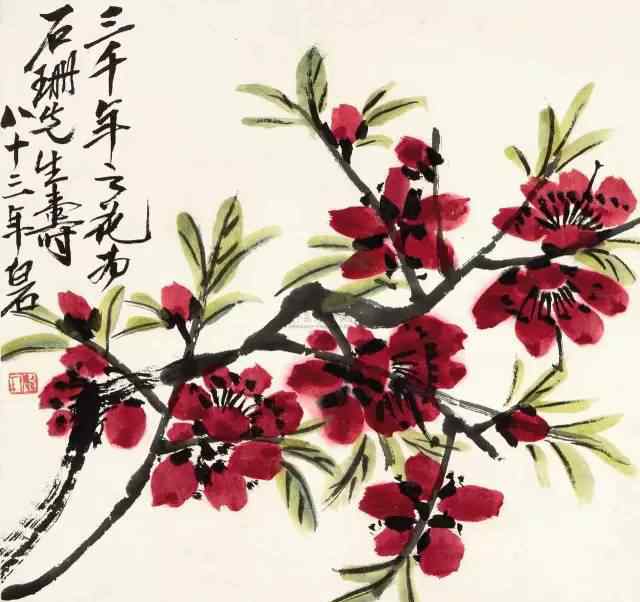 三千年之花為
石珊先生壽
八十三年白石